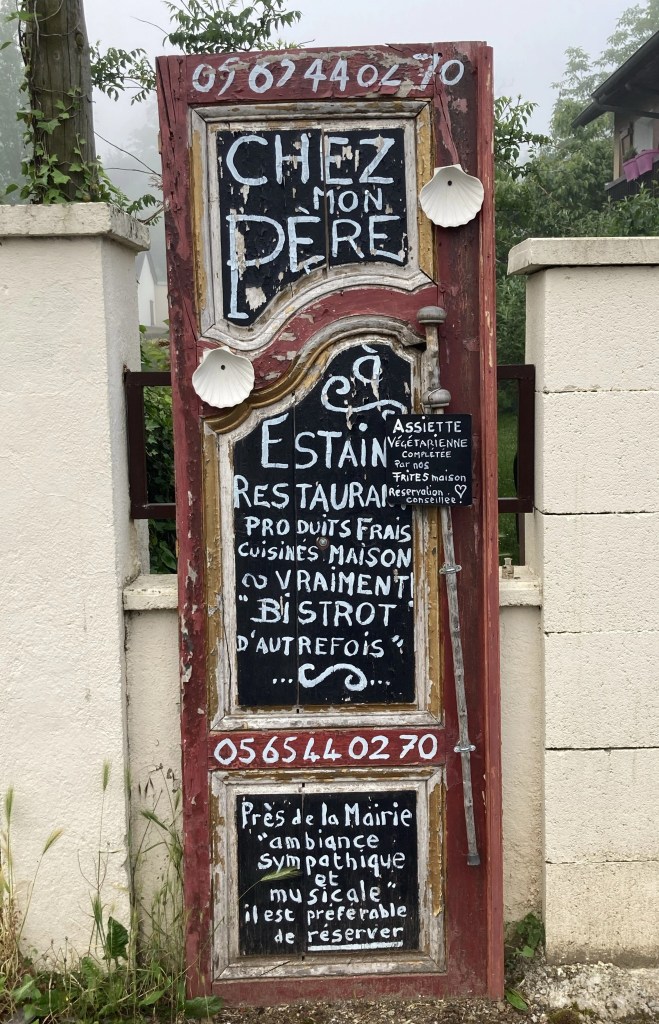 05 65 44 02 70
CHEZ
MON
PÈRE
à
ESTAIN
RESTAURAN
PRODUITS FRAIS
CUISINÉS MAISON
~ VRAIMENT
"BISTROT
D'AUTREFOIS"
... ...
ASSIETTE
VÉGÉTARIENNE
COMPLÉTÉE
Par nos
FRITES maison
Réservation
conseillée !
05 65 44 02 70
Près de la Mairie
"ambiance
sympathique
et
musicale"
il est préférable
de réserver